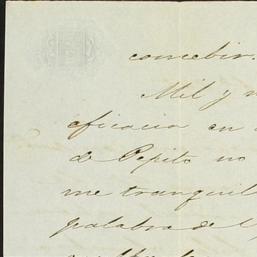 concebir.
Mil y
eficacia en
de Pepito no
me tranquil
palabra de